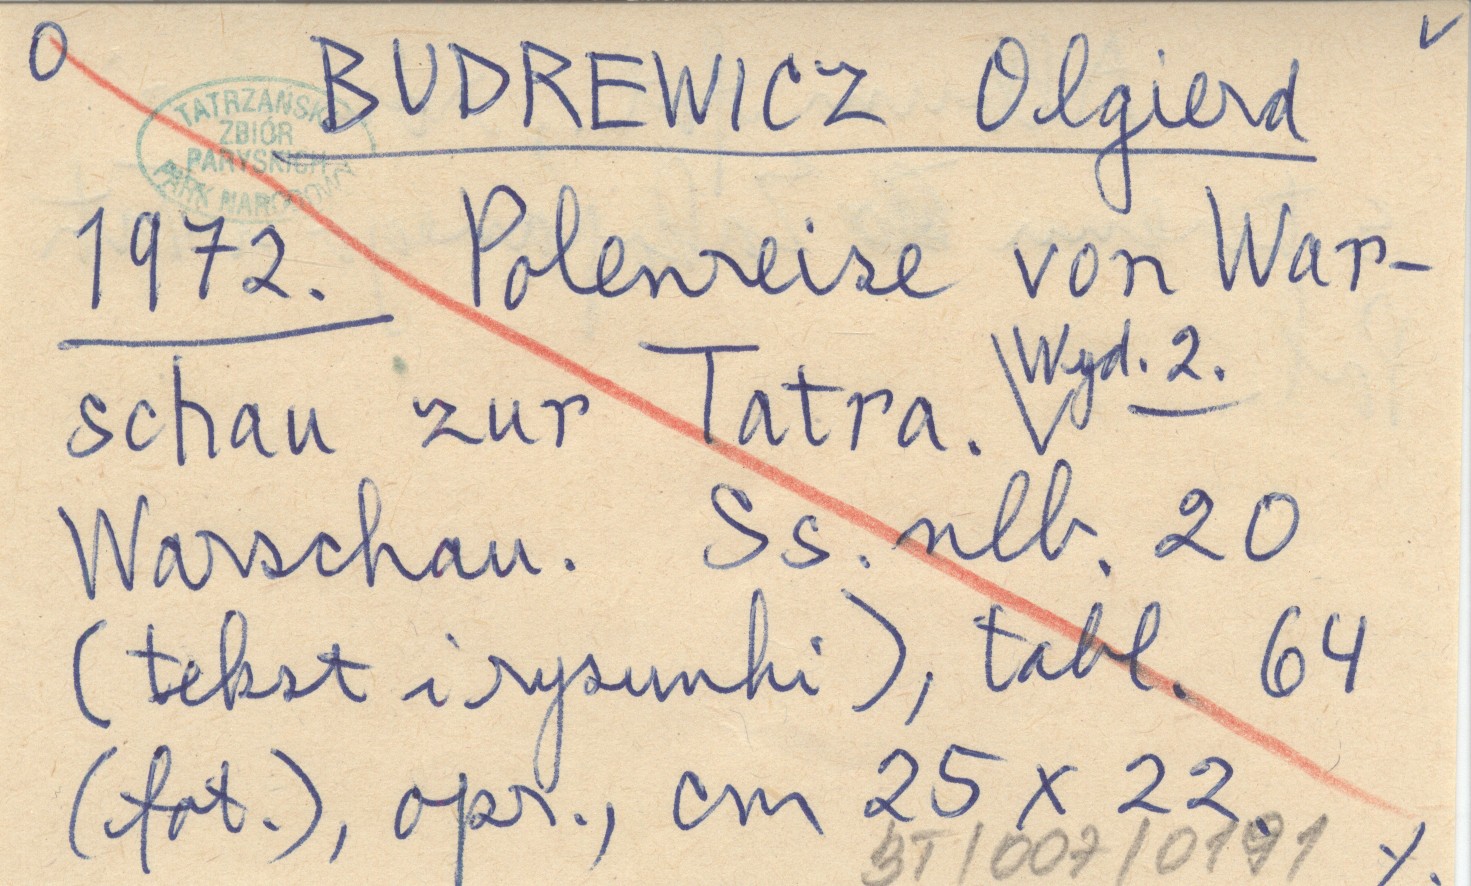 O
BUDREWICZ Olgierd
TATRZAŃSKI
ZBIÓR
PARYSKICH
PARK NARODOWY
1972. Polenreise von War-
schau zur Tatra. Wyd. 2.
Warschau. Ss. nlb. 20
(tekst i rysunki), tabl. 64
(fot.), opr., cm 25 x 22.
BT/007/0191